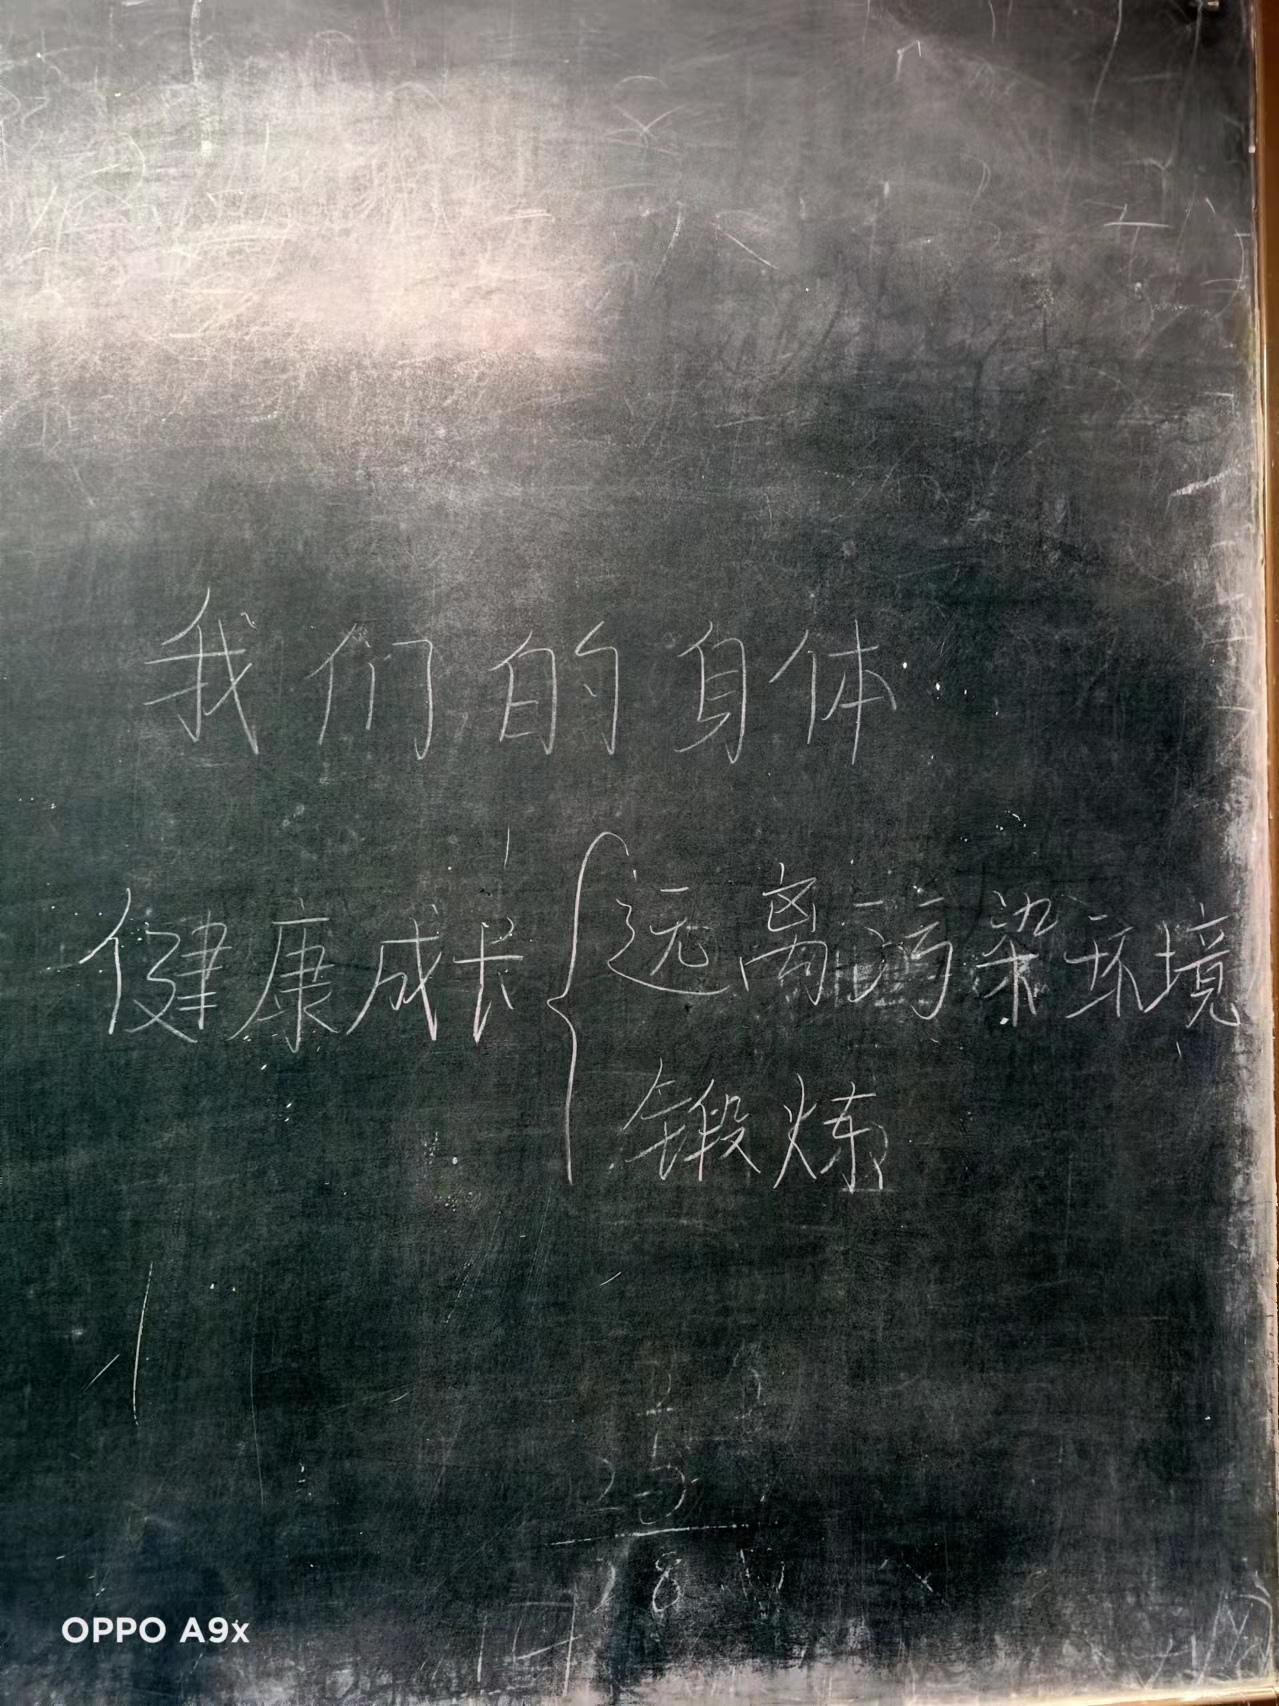 我们的身体
健康成长{远离污染环境
锻炼
OPPO A9x